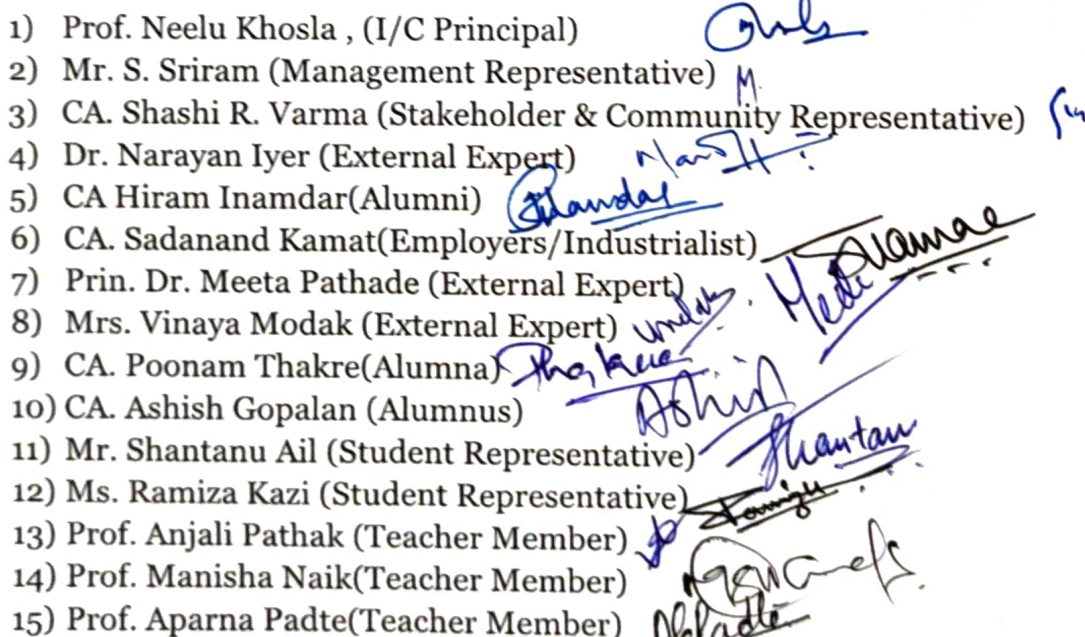 1) Prof. Neelu Khosla , (I/C Principal)
2) Mr. S. Sriram (Management Representative)
3) CA. Shashi R. Varma (Stakeholder & Community Representative)
4) Dr. Narayan Iyer (External Expert)
5) CA Hiram Inamdar(Alumni) Inamdar
6) CA. Sadanand Kamat(Employers/Industrialist)
7) Prin. Dr. Meeta Pathade (External Expert)
8) Mrs. Vinaya Modak (External Expert)
9) CA. Poonam Thakre(Alumna) Thakre
10) CA. Ashish Gopalan (Alumnus) Ashish
11) Mr. Shantanu Ail (Student Representative) Shantanu
12) Ms. Ramiza Kazi (Student Representative)
13) Prof. Anjali Pathak (Teacher Member)
14) Prof. Manisha Naik(Teacher Member)
15) Prof. Aparna Padte(Teacher Member)